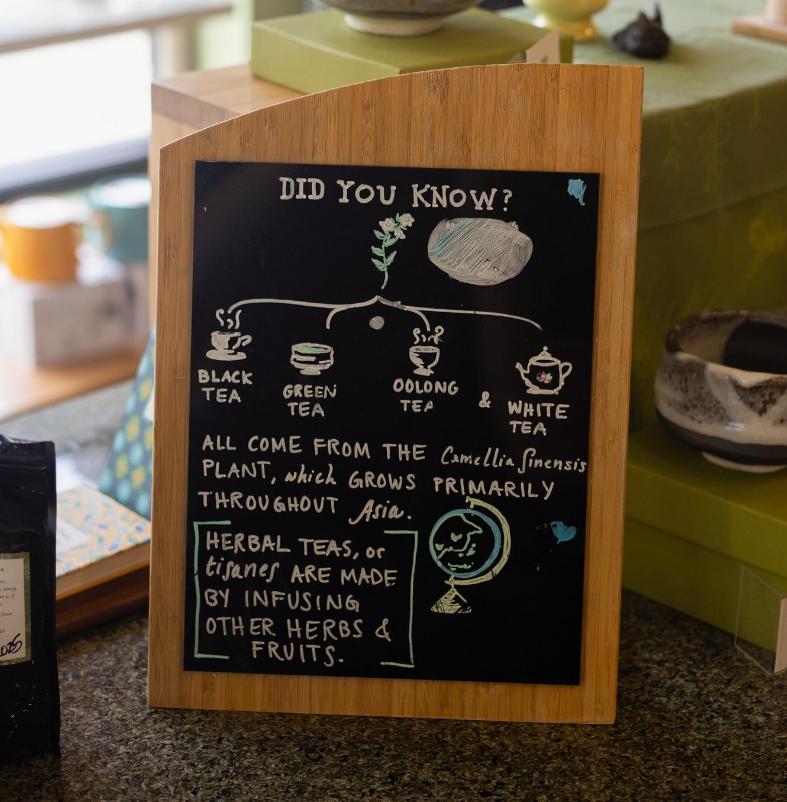 DID YOU KNOW?
BLACK TEA
GREEN TEA
OOLONG TEA
& WHITE TEA
ALL COME FROM THE Camellia Sinensis
PLANT, which GROWS PRIMARILY
THROUGHOUT Asia.
HERBAL TEAS, or
tisanes ARE MADE
BY INFUSING
OTHER HERBS &
FRUITS.